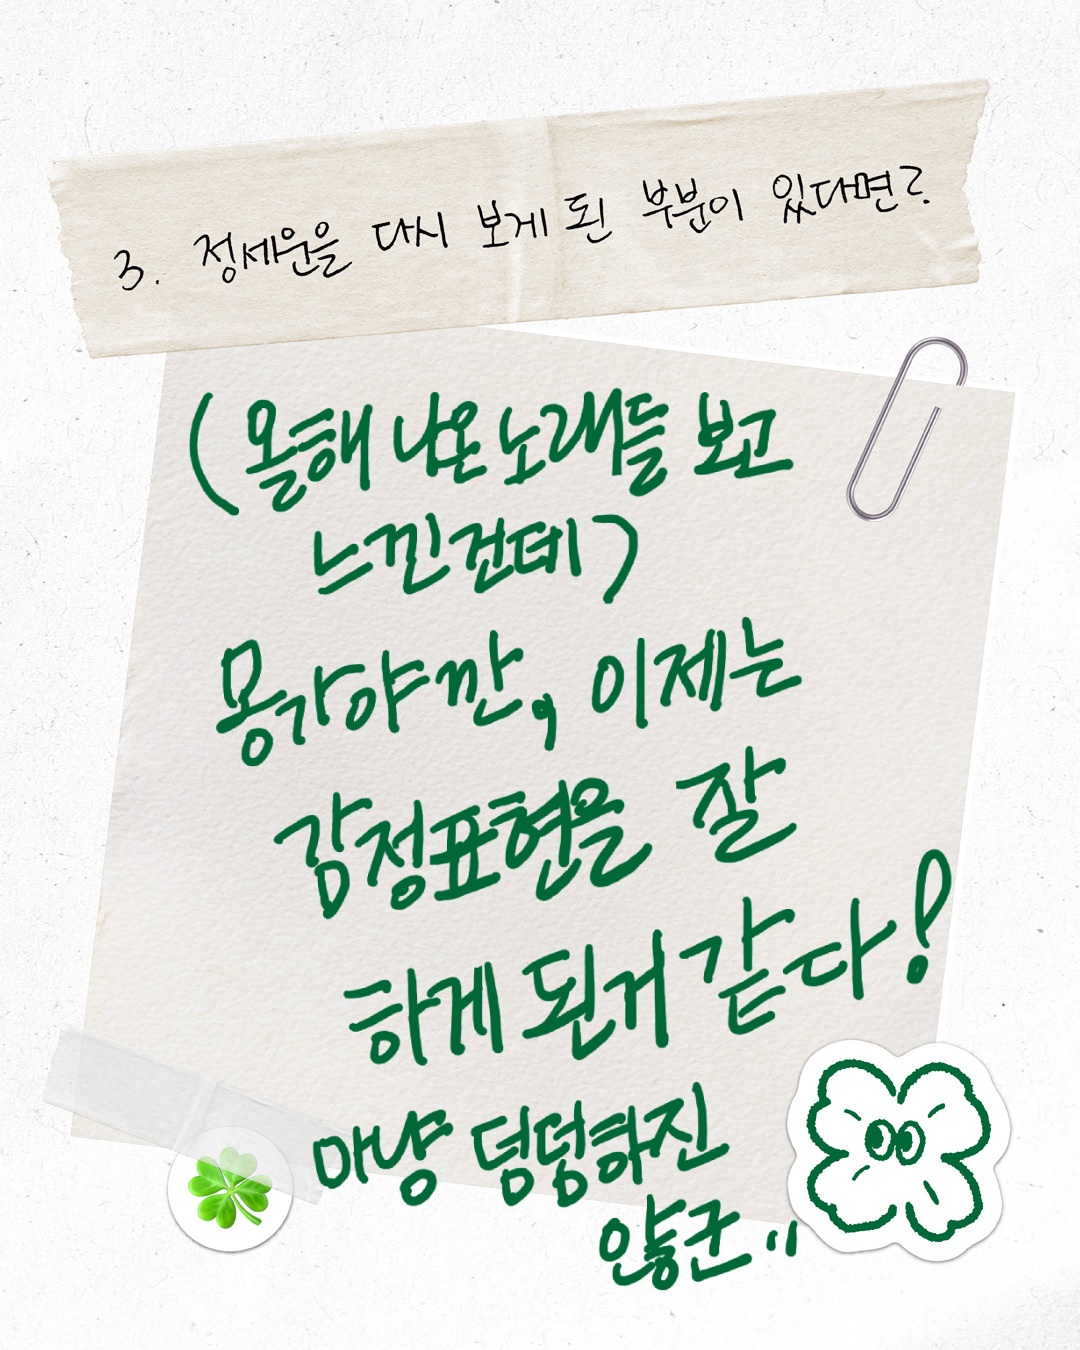 3. 정세운을 다시 보게 된 부분이 있다면?
(올해 나온 노래들 보고
느낀건데)
몽가 야깐, 이제는
감정표현을 잘
하게 된거 같다!
마냥 덤덤하진
않군"